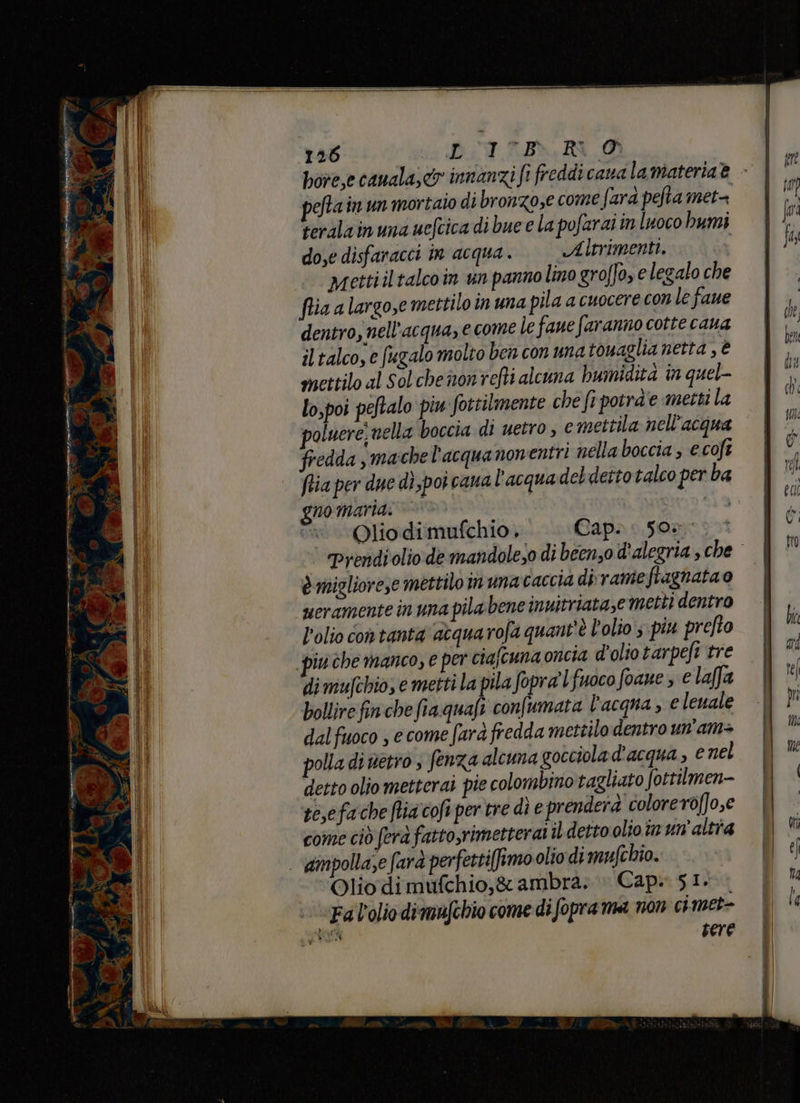 126 LIBRO
hore,e cauala,& innanzi ſi freddi caua la materia e
peſta in un mortaio di bronzo,e come ſarà peſta met-
terala in una ueſcica di bue e la poſarai in luoco humi
do,e disfaracci in acqua. Altrimenti.
Metti il talco in un panno lino groſſo, e legalo che
ſtia a largo,e mettilo in una pila a cuocere con le faue
dentro, nell'acqua, e come le faue ſaranno cotte caua
il talco, e ſugalo molto ben con una touaglia netta, e
mettilo al Sol che non reſti alcuna humidità in quel-
lo,poi peſtalo piu ſottilmente che ſi potrà e metti la
poluere, nella boccia di uetro, e mettila nell'acqua
fredda, ma che l'acqua non entri nella boccia, e coſi
ſtia per due dì,poi caua l'acqua del detto talco per ba
gno maria.
Olio di muſchio. Cap. 50.
Prendi olio de mandole,o di been,o d'alegria, che
è migliore,e mettilo in una caccia di rame ſtagnata o
ueramente in una pila bene inuitriata,e metti dentro
l'olio con tanta acqua roſa quant'è l'olio, piu preſto
piu che manco, e per ciaſcuna oncia d'olio tarpeſi tre
di muſchio, e metti la pila ſopra'l fuoco ſoaue, e laſſa
bollire fin che ſia quaſi conſumata l'acqna, e leuale
dal fuoco, e come ſarà fredda mettilo dentro un'am-
polla di uetro, ſenza alcuna gocciola d'acqua, e nel
detto olio metterai pie colombino tagliato ſottilmen-
te,e fa che ſtia coſi per tre dì e prenderà colore roſſo,e
come ciò ſerà fatto,rimetterai il detto olio in un'altra
ampolla,e ſarà perfettiſſimo olio di muſchio.
Olio di muſchio,& ambra. Cap. 51.
Fa l'olio di muſchio come di ſopra ma non ci met-
tere